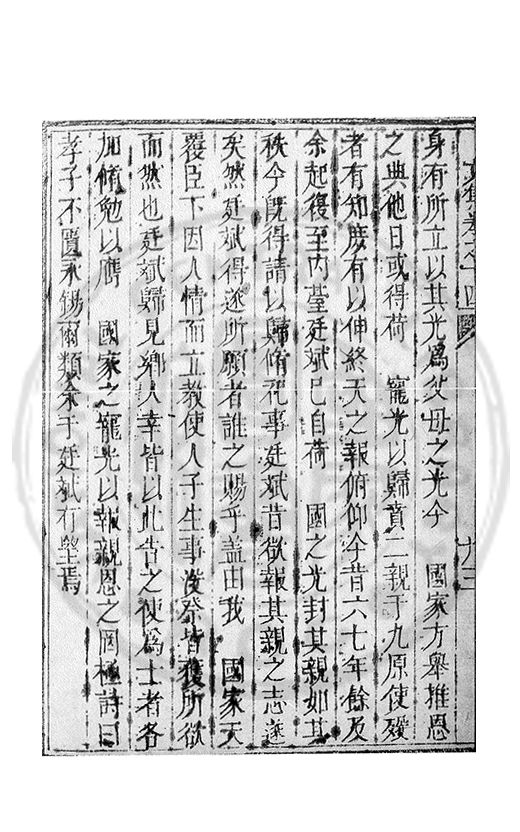 文集卷之十四 九三
身有所立以其光爲父母之光今　國家方舉推恩
之典他日或得荷　寵光以歸賁二親于九原使歿
者有知庶有以伸終天之報俯仰今昔六七年餘及
余起復至内臺廷斌已自荷　國之光封其親如其
秩今既得請以歸脩祀事廷斌昔欲報其親之志遂
矣然廷斌得遂所願者誰之賜乎蓋由我　國家天
覆臣下因人情而立教使人子生事沒祭皆獲所欲
而然也廷斌歸見鄉人幸皆以此告之使爲士者各
加脩勉以膺　國家之寵光以報親恩之罔極詩曰
孝子不匱永錫爾類余于廷斌有望焉